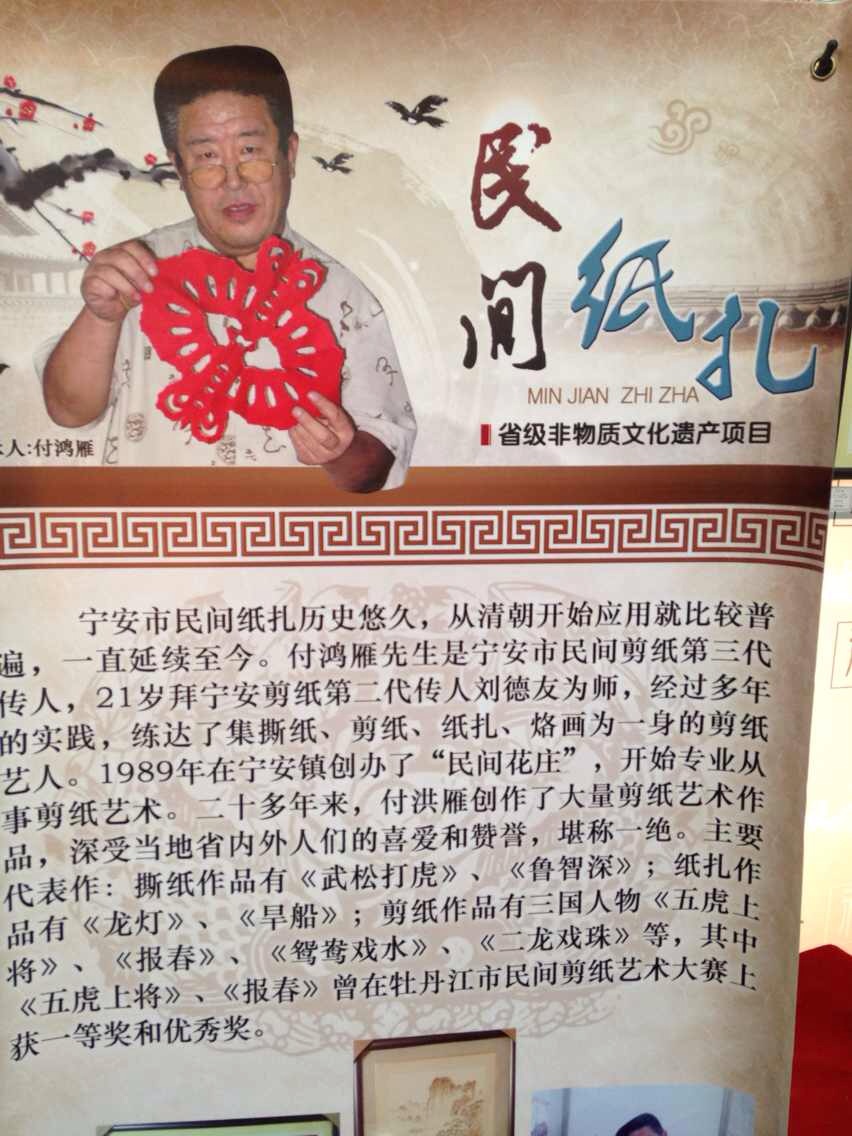 民间纸扎
MIN JIAN ZHI ZHA
省级非物质文化遗产项目
人:付鸿雁
宁安市民间纸扎历史悠久，从清朝开始应用就比较普
遍，一直延续至今。付鸿雁先生是宁安市民间剪纸第三代
传人，21岁拜宁安剪纸第二代传人刘德友为师，经过多年
的实践，练达了集撕纸、剪纸、纸扎、烙画为一身的剪纸
艺人。1989年在宁安镇创办了“民间花庄”，开始专业从
事剪纸艺术。二十多年来，付洪雁创作了大量剪纸艺术作
品，深受当地省内外人们的喜爱和赞誉，堪称一绝。主要
代表作：撕纸作品有《武松打虎》、《鲁智深》；纸扎作
品有《龙灯》、《旱船》；剪纸作品有三国人物《五虎上
将》、《报春》、《鸳鸯戏水》、《二龙戏珠》等，其中
《五虎上将》、《报春》曾在牡丹江市民间剪纸艺术大赛上
获一等奖和优秀奖。